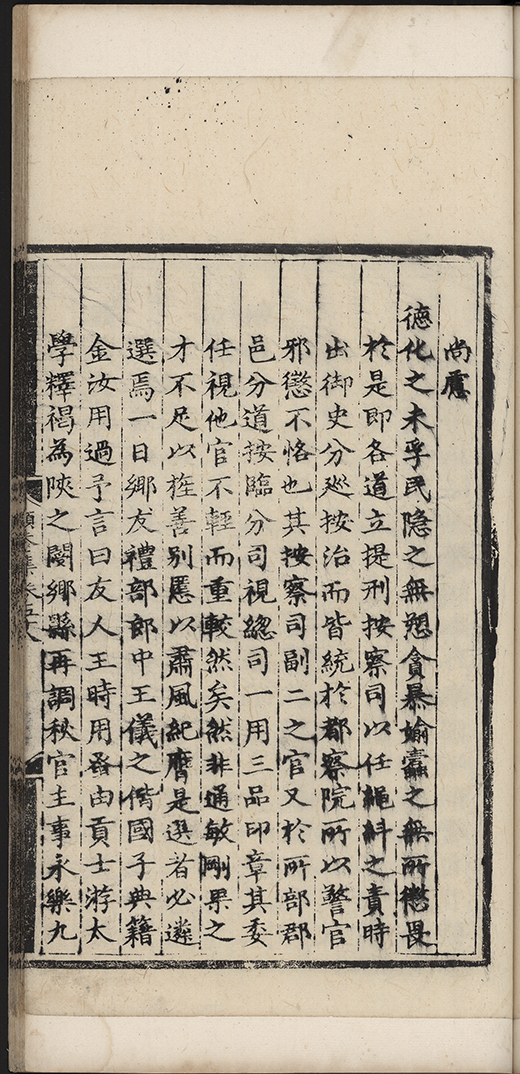 尚慮
德化之未孚民隐之無愬貪暴媮蠹之無所懲畏
於是即各道立提刑按察司以任繩糾之責時
出御史分廵按治而皆統於都察院所以警官
邪懲不恪也其按察司副二之官又於所部郡
邑分道按臨分司視緫司一用三品印章其委
任視他官不輕而重較然矣然非通敏剛果之
才不足以旌善别慝以肅風紀膺是選者必遴
選焉一日鄉友禮部郎中王儀之偕國子典籍
金汝用過予言曰友人王時用蚤由貢士游太
學釋褐為陝之閿鄉縣再調秋官主事永樂九
頤菴集卷五